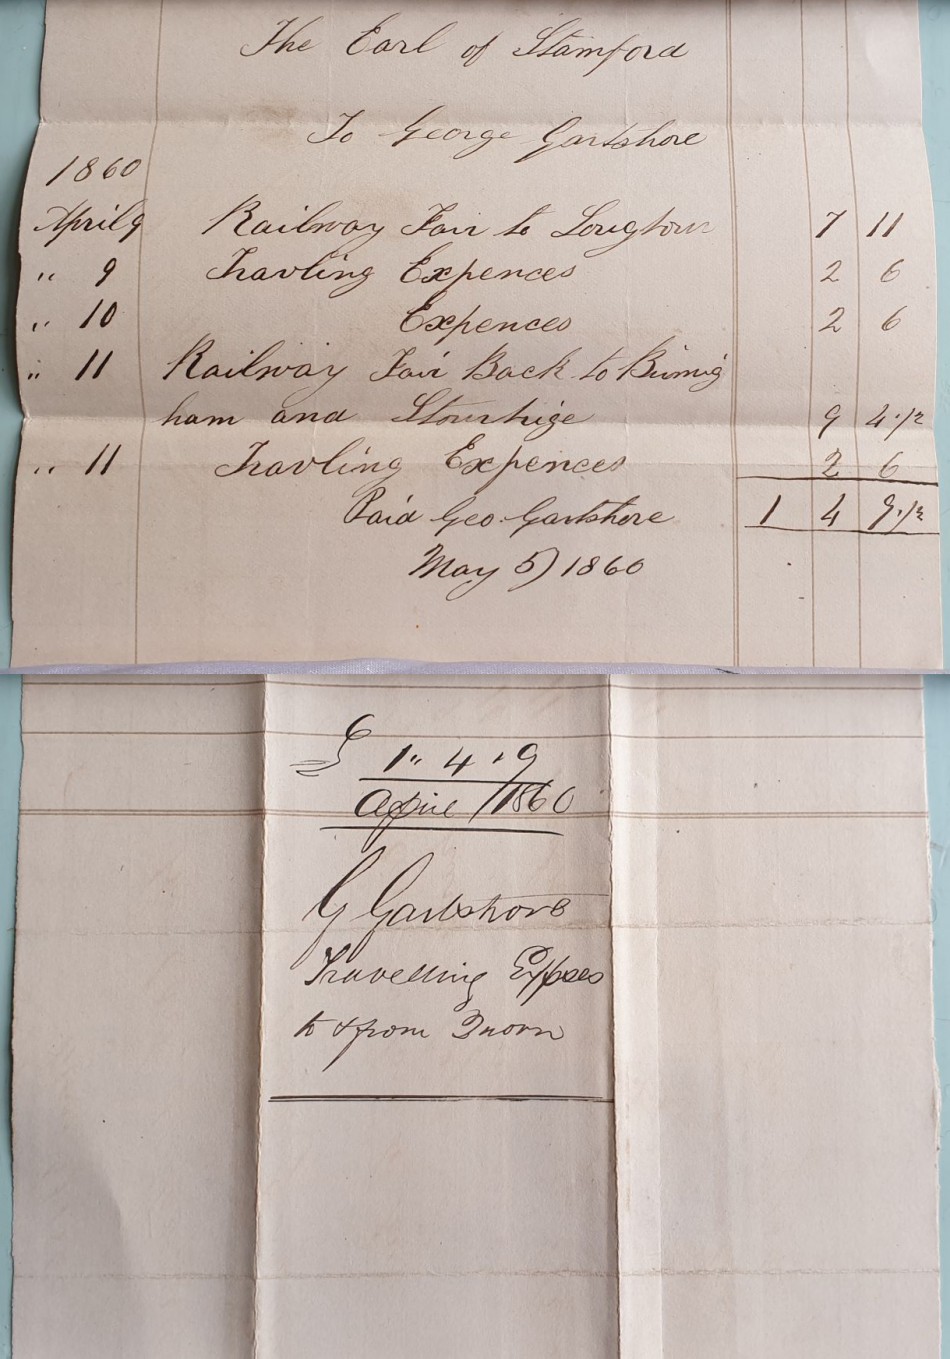 The Earl of Stamford
To George Gartshore
1860
April 9 Railway Fair to Lougbour 7 11
" 9 Travling Expences 2 6
" 10 Expences 2 6
" 11 Railway Fair Back to Birmig
ham and Stourbige 9 4 1/2
" 11 Travling Expences 2 6
1 4 9 1/2
Paid Geo. Gartshore
May 5) 1860
£ 1 " 4 " 9
April /1860
G Gartshore
Travelling Expses
to & from Quorn